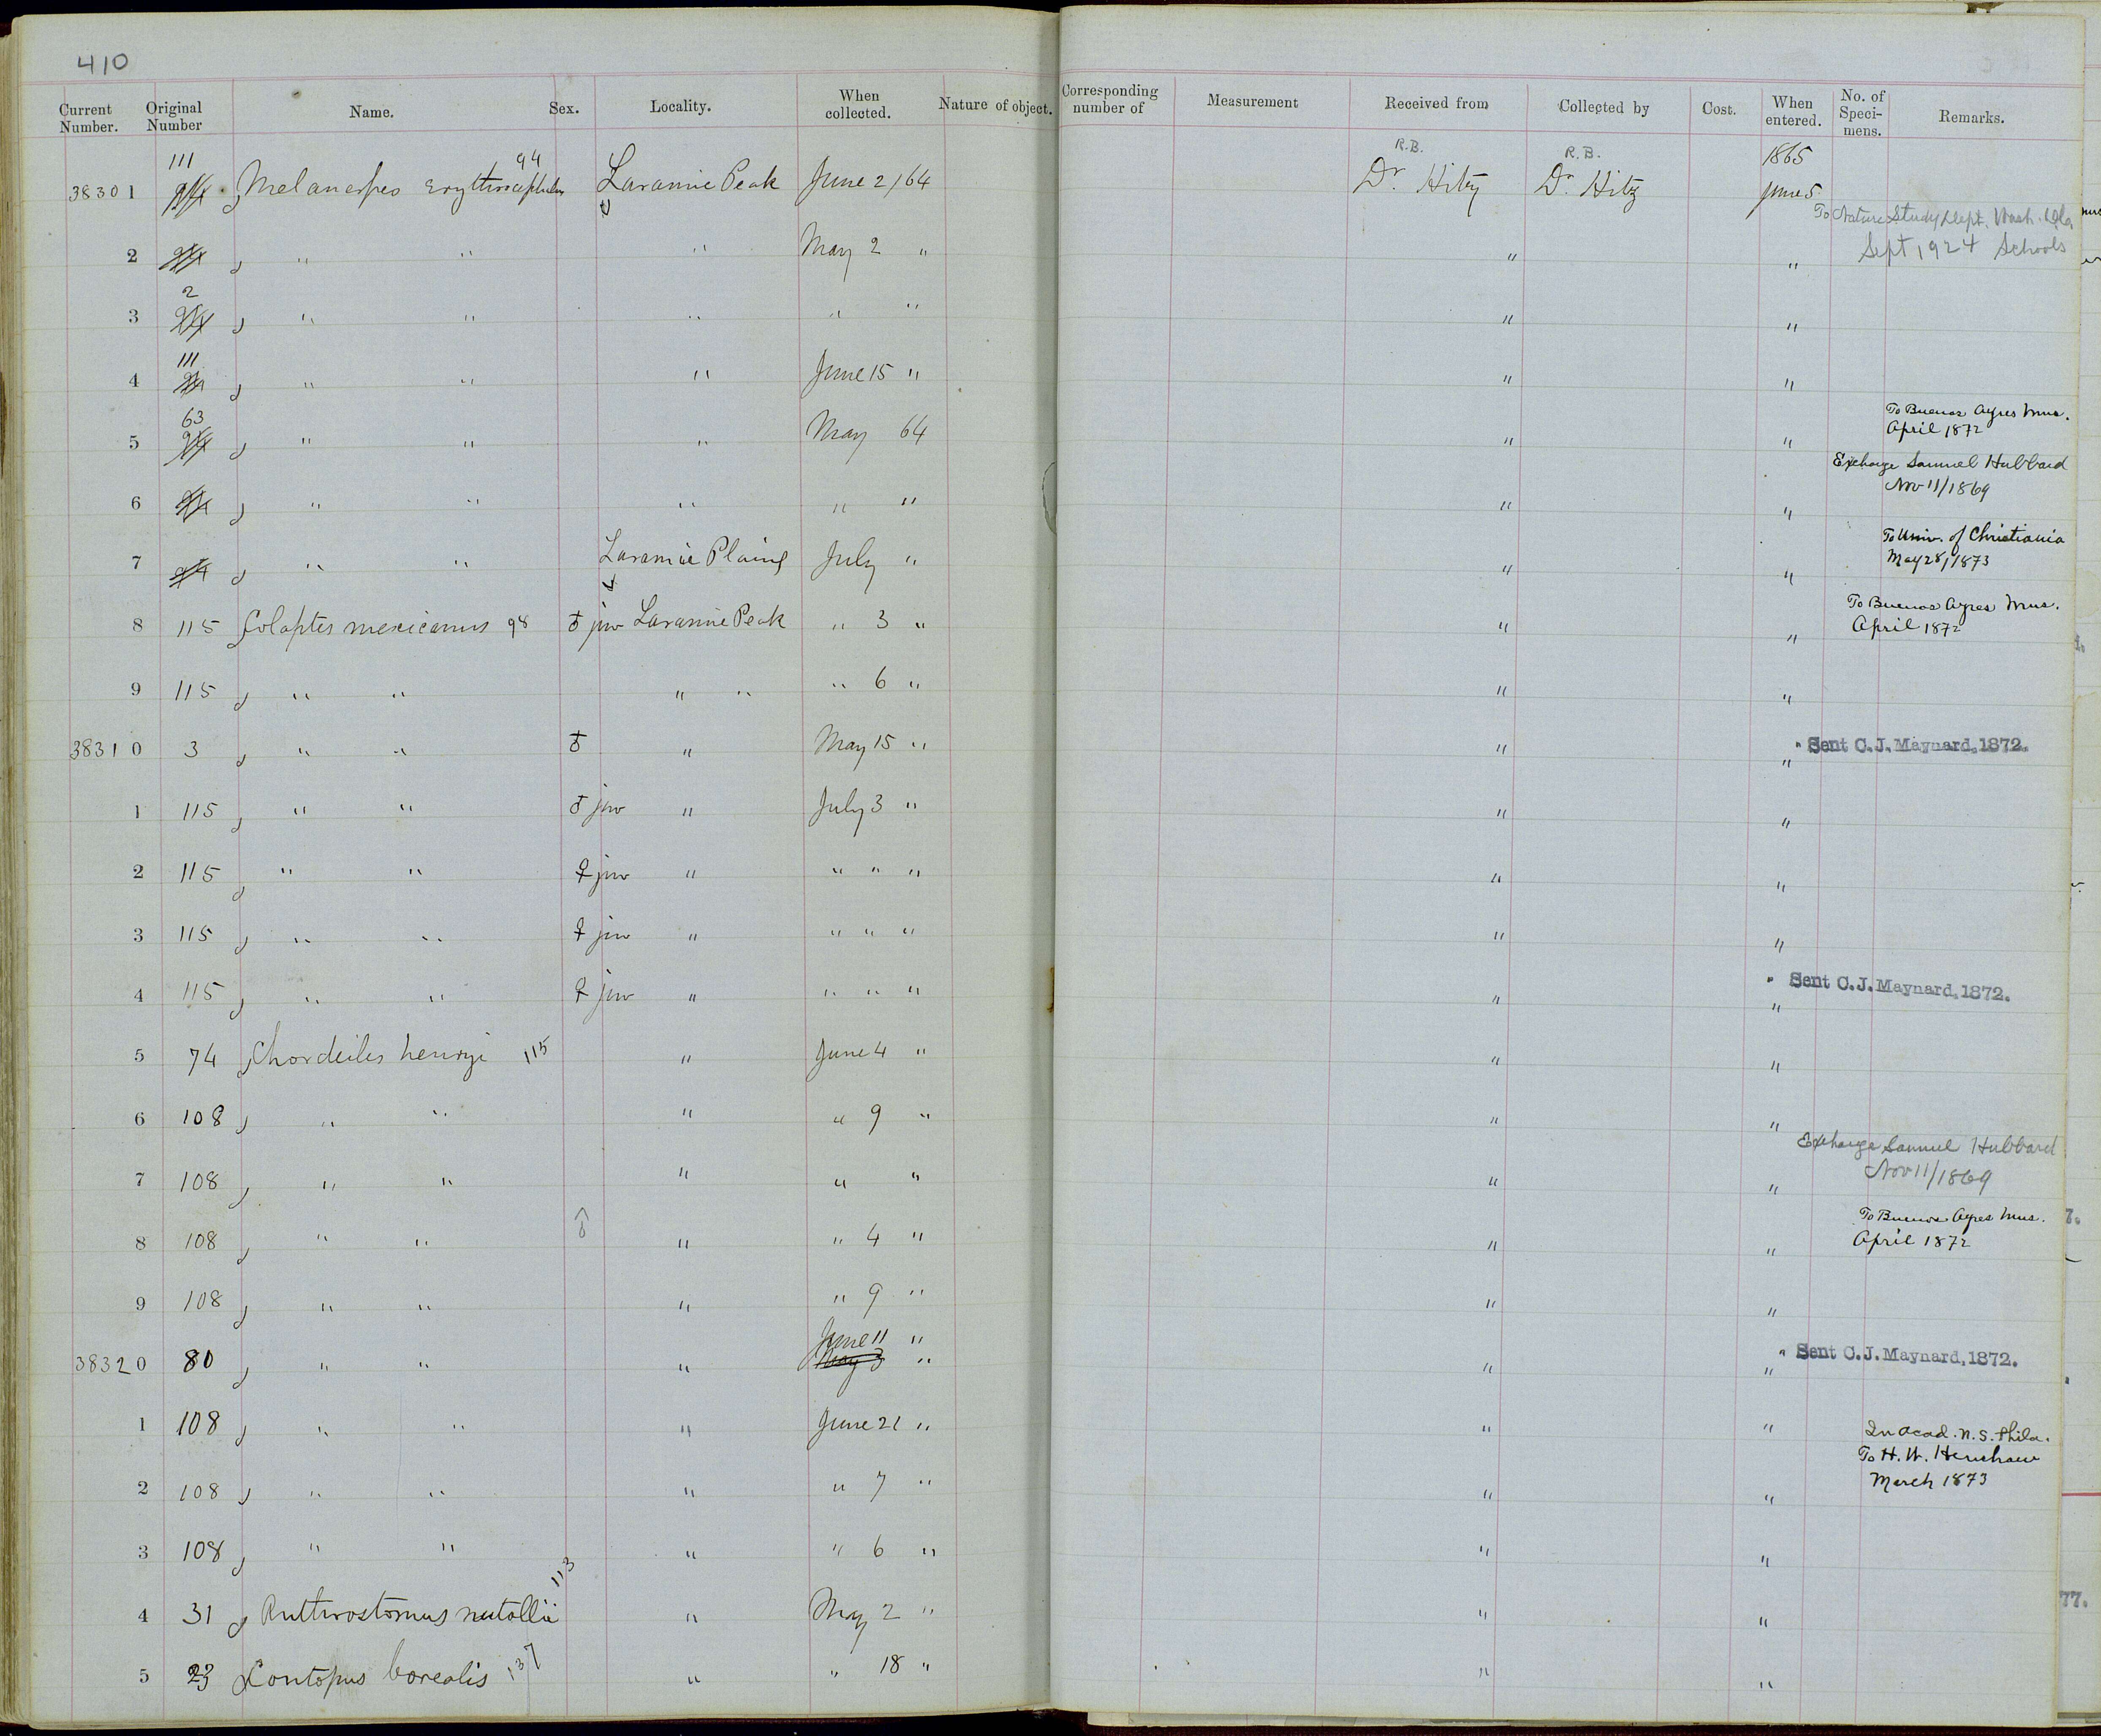 410
Current Number. Original Number Name. Sex. Locality. When collected. Nature of object. Corresponding number of Measurement Received from Collected by Cost. When entered. No. of Specimens. Remarks.
111 94 R.B. R.B. 1865
38301 94 Melanerpes erythrocephalus Laramie Peak June 2/64 Dr. Hitz Dr. Hitz June 5
To Nature Study Dept. Wash.
2 94 " " " May 2 " " " Sept 1924 Schools
2
3 94 " " " " " " "
111
4 94 " " " June 15 " " "
63 To Buenos Ayres Mus.
5 94 " " " May 64 " " April 1872
Exchange Samuel Hubbard
6 94 " " " " " " " Nov 11/1869
To Univ. of Christiania
7 94 " " Laramie Plains July " " " May 28/1873
To Buenos Ayres Mus.
8 115 Colaptes mexicanus 98 ♂ juv Laramie Peak " 3 " " " April 1872
9 115 " " " " " 6 " " "
38310 3 " " ♂ " May 15 " " " Sent C. J. Maynard, 1872.
1 115 " " ♂ juv " July 3 " " "
2 115 " " ♀ juv " " " " " "
3 115 " " ♀ juv " " " " " "
4 115 " " ♀ juv " " " " " " Sent C. J. Maynard, 1872.
5 74 Chordeiles henryi 115 " June 4 " " "
6 108 " " " " 9 " " "
Exchange Samuel Hubbard
7 108 " " " " " " " Nov 11/1869
To Buenos Ayres Mus.
8 108 " " ♂ " " 4 " " " April 1872
9 108 " " " " 9 " " "
June 11 "
38320 80 " " " May 3 " " " Sent C. J. Maynard, 1872.
1 108 " " " June 21 " " " In Acad. N. S. Phila.
To H. W. Henshaw
2 108 " " " " 7 " " " March 1873
3 108 " " " " 6 " " "
113
4 31 Anthrostomus nutallii " May 2 " " "
5 23 Contopus borealis 137 " " 18 " " "
77.